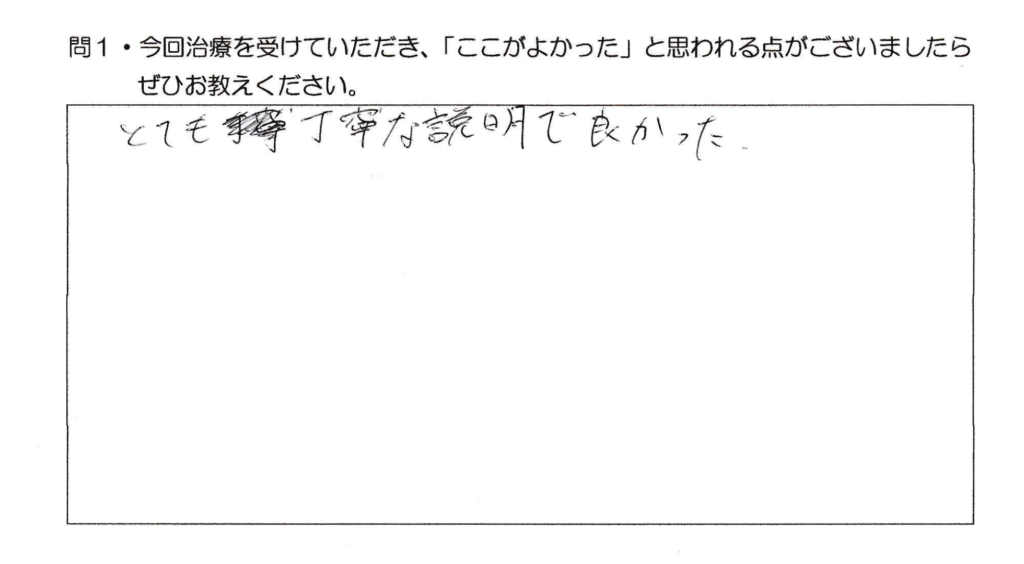 問1・今回治療を受けていただき、「ここがよかった」と思われる点がございましたら
ぜひお教えください。
とても丁寧な説明で良かった.